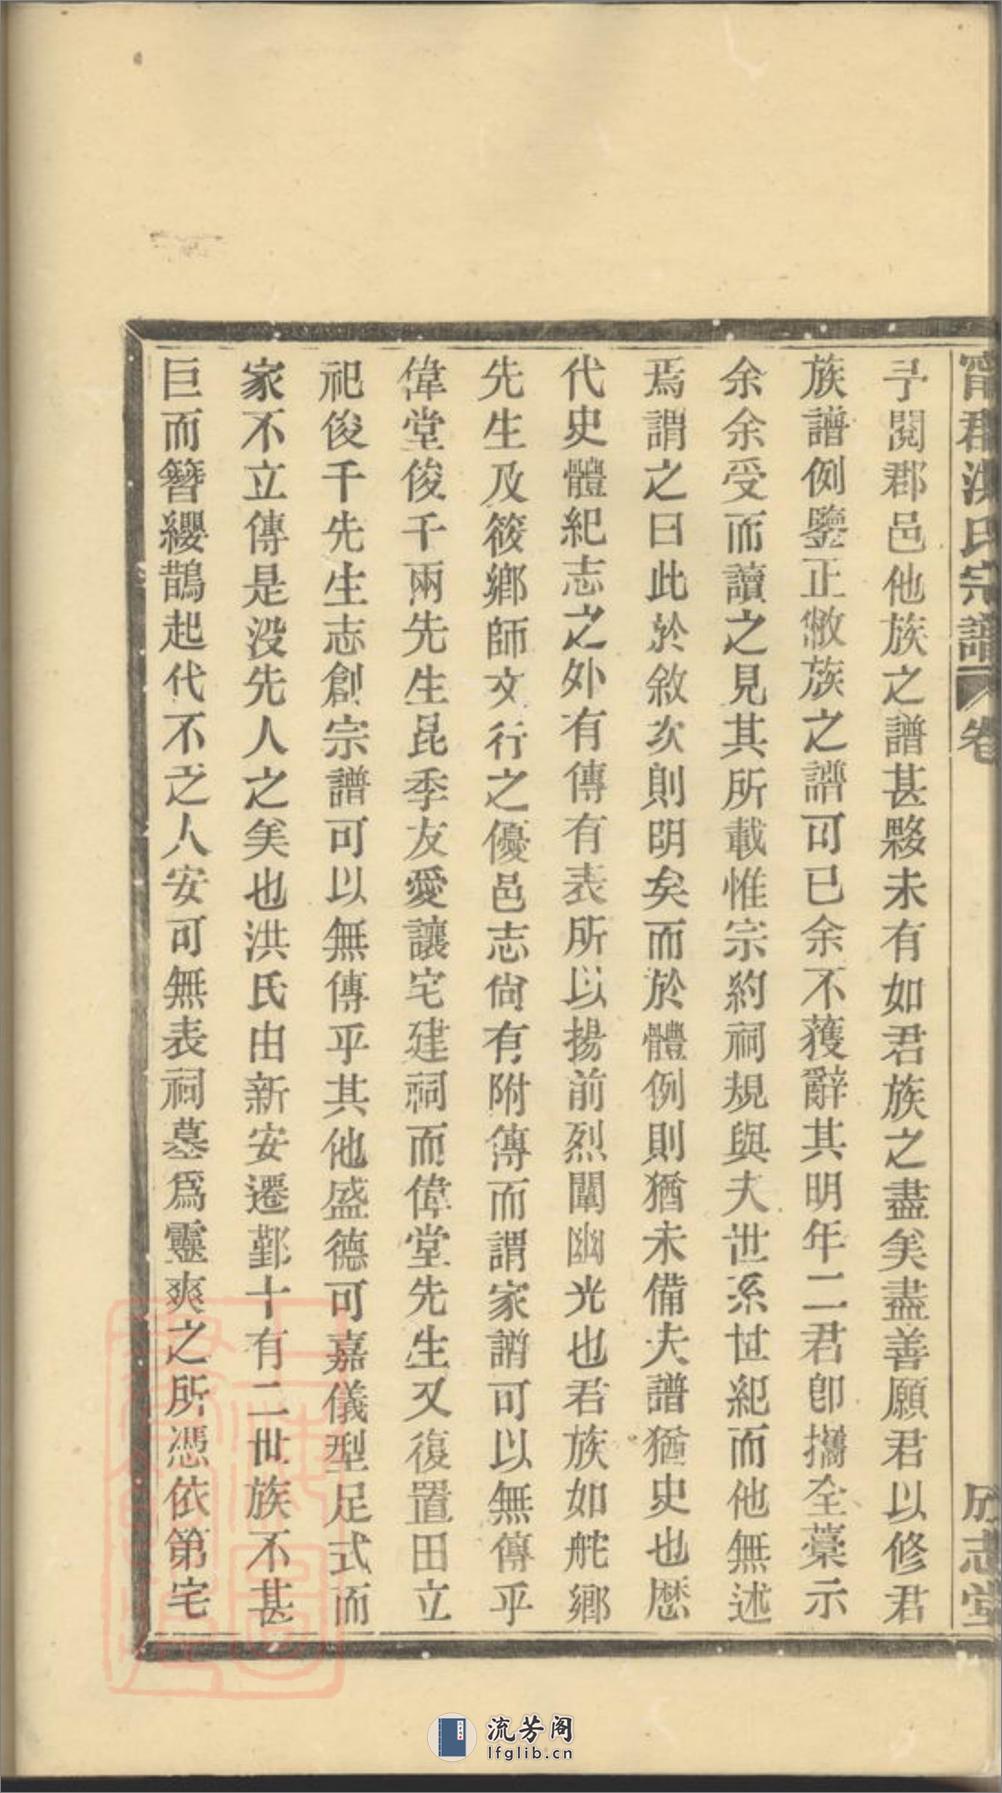 甯郡洪氏宗譜 卷
欣志堂
予閱郡邑他族之譜甚夥未有如君族之盡矣盡善願君以修君
族譜例鑒正敝族之譜可已余不獲辭其明年二君卽攜全藁示
余余受而讀之見其所載惟宗約祠規與夫世系世紀而他無述
焉謂之曰此於敘次則明矣而於體例則猶未備夫譜猶史也歷
代史體紀志之外有傳有表所以揚前烈闡幽光也君族如舵鄉
先生及筱鄉師文行之優邑志尙有附傳而謂家譜可以無傳乎
偉堂俊千兩先生昆季友愛讓宅建祠而偉堂先生又復置田立
祀俊千先生志創宗譜可以無傳乎其他盛德可嘉儀型足式而
家不立傳是没先人之矣也洪氏由新安遷鄞十有二世族不甚
巨而簪纓鵲起代不乏人安可無表祠墓爲靈爽之所憑依第宅
流芳阁
lfglib.cn